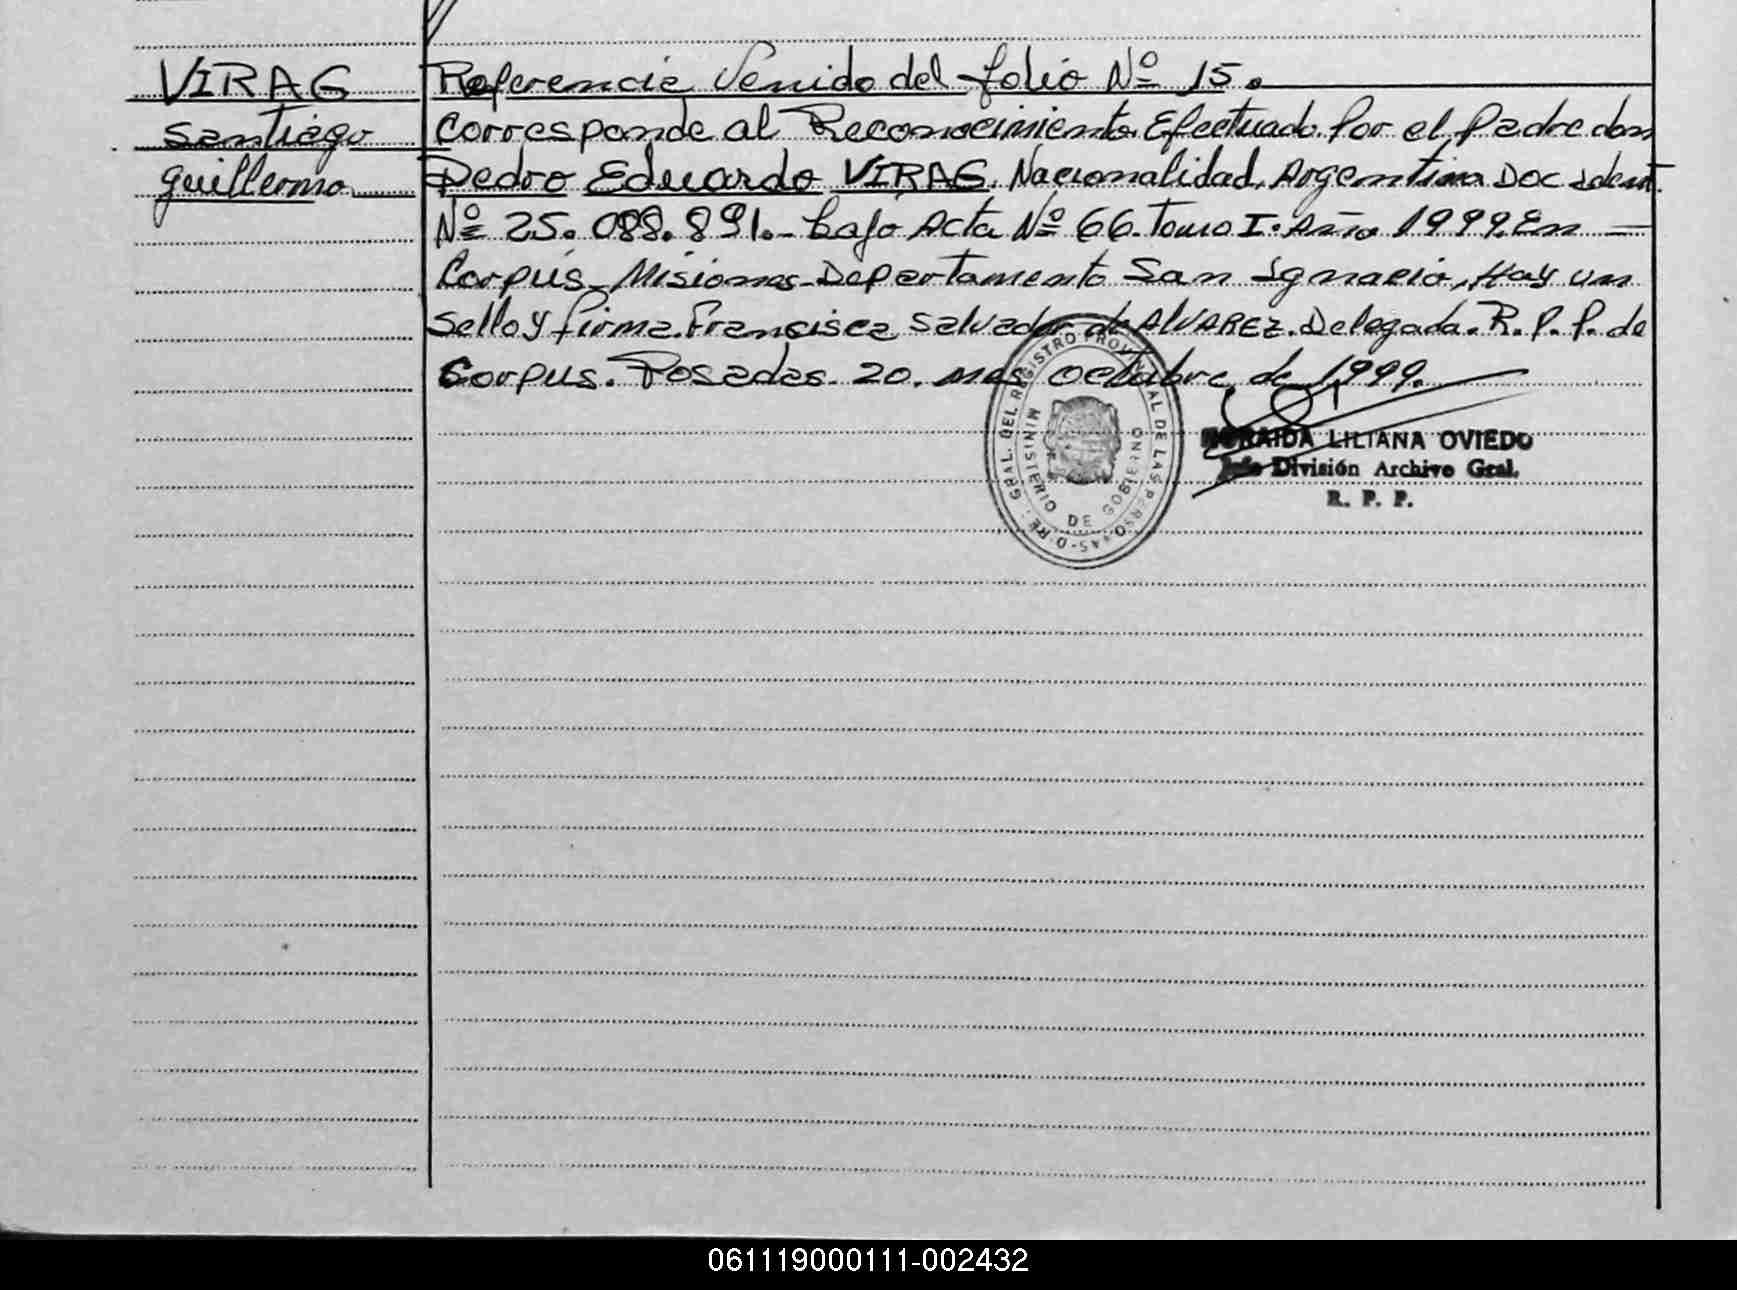 VIRAG
Santiago
Guillermo
Referencia Venido del folio Nº 15.
Corresponde al Reconocimiento Efectuado Por el Padre don
Pedro Eduardo VIRAG. Nacionalidad, Argentina Doc Ident.
Nº 25.088.891.- bajo Acta Nº 66. Tomo I. Año 1999. En —
Corpus - Misiones - Departamento San Ignacio, Hay un
Sello y firma. Francisca Salvador de ALVAREZ. Delegada. R. P. P. de
Corpus. Posadas. 20. mes octubre de 1999.
GRAL. DEL REGISTRO PROVINCIAL DE LAS PERSONAS
MINISTERIO DE GOBIERNO
LILIANA OVIEDO
Jefe División Archivo Gral.
R. P. P.
061119000111-002432